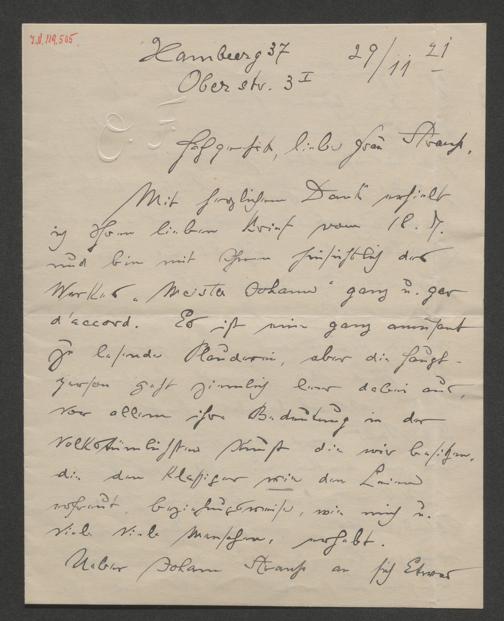 I.N. 119.505
Hamburg 37 29/11 21
Oberstr. 3 I
Hochgeehrte, liebe Frau Strauß,
Mit herzlichem Dank erhielt
ich Ihren lieben Brief vom 18. d.
und bin mit Ihnen hinsichtlich des
Werkes „Meister Johann“ ganz u. gar
d'accord. Es ist eine ganz amüsant
zu lesende Plauderei, aber die Haupt-
person geht ziemlich leer dabei aus,
vor allem ihre Bedeutung in der
volkstümlichsten Kunst die wir besitzen,
die den Klassiker wie den Laien
erfreut, beziehungsweise, wie mich u.
viele viele Menschen, erhebt.
Ueber Johann Strauß an sich Etwas